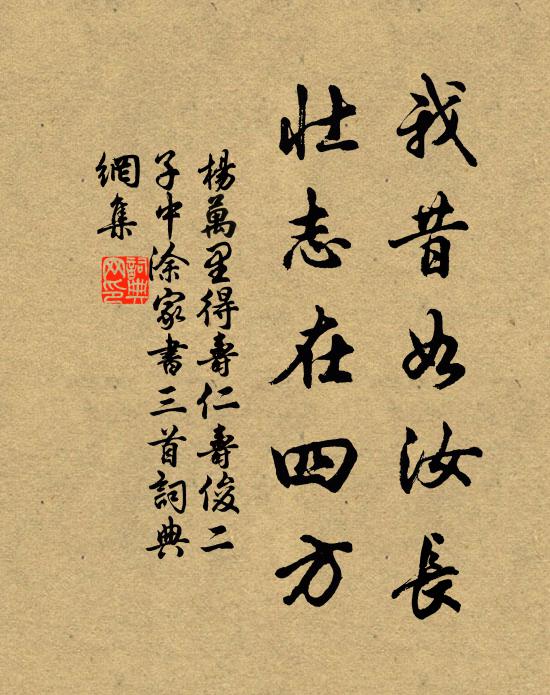 我昔如汝長
壯志在四方
楊萬里得壽仁壽俊二
子中涂家書三首詞典
網集
詞典網印